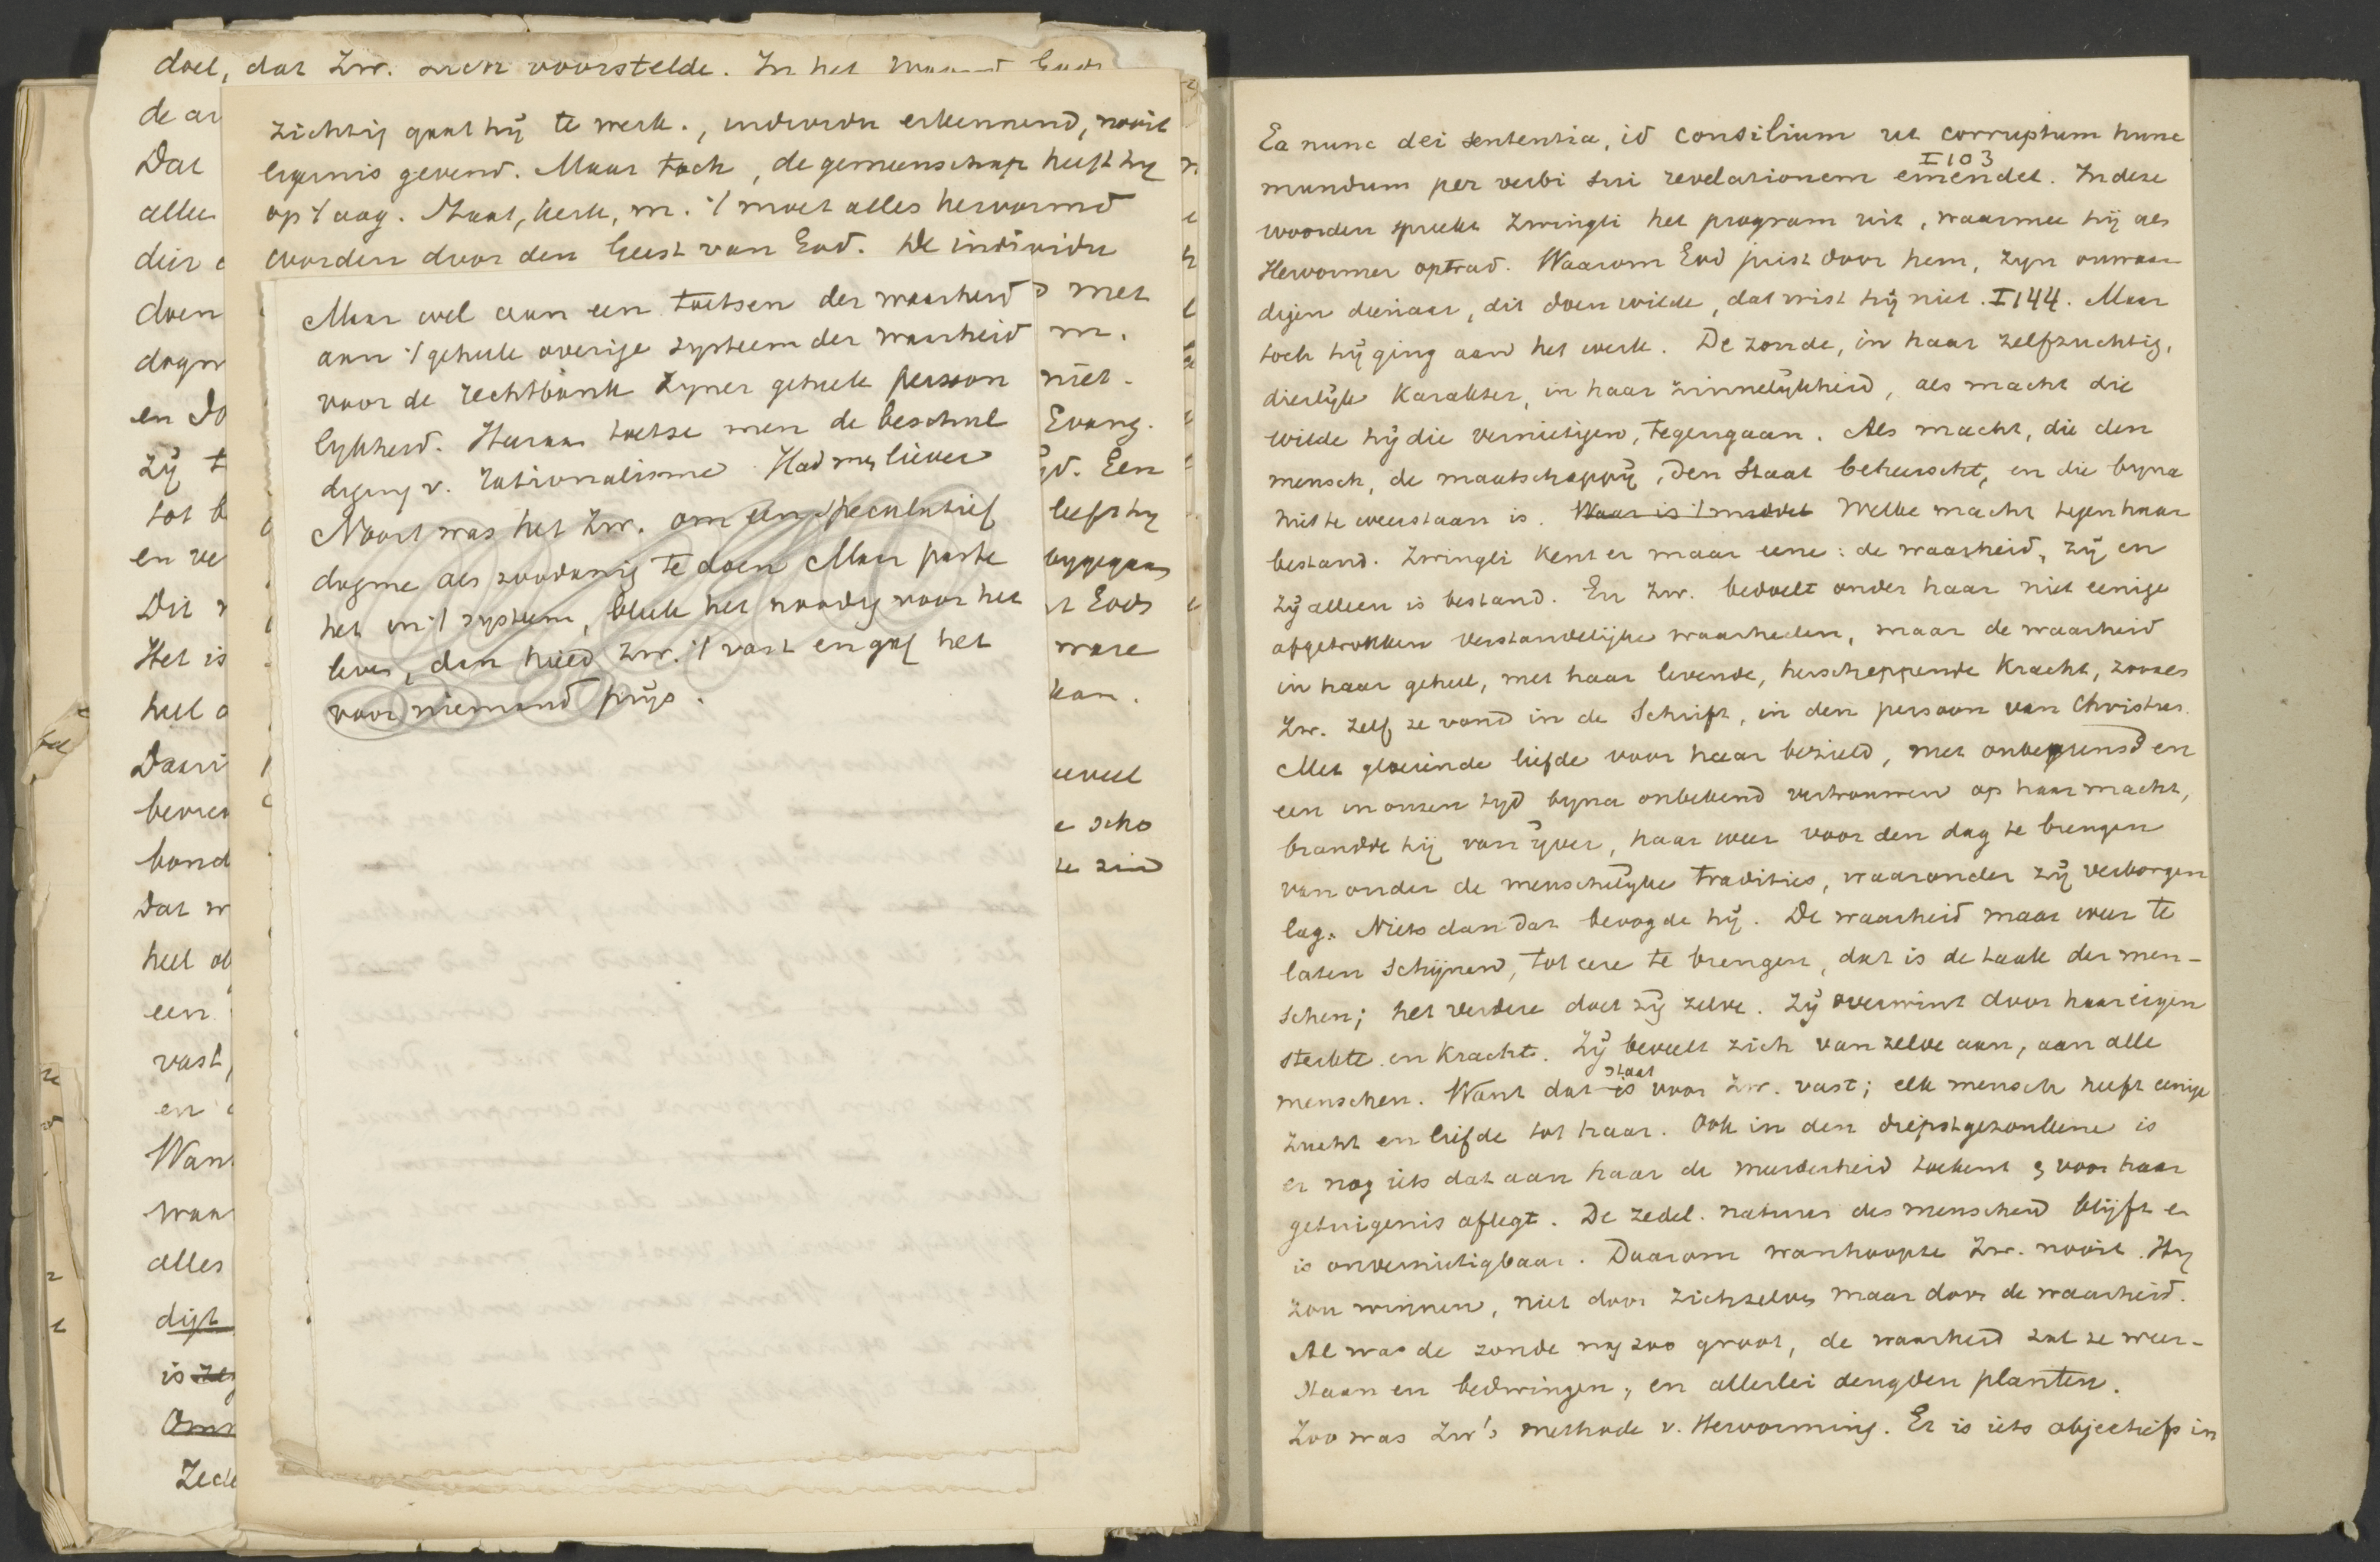 doel, dat Zw. zich voorstelde. In het woord Gods
de ar
Dat
alle
die
doen
dogm
en do
zij t
tot b
en ve
Dit
Het is
heel
Daari
bevre
bond
Dat w
heel ob
een
vast,
en
Want
waa
alles
digt
is
Om
Zede
zichtig gaat hij te werk., individu erkennend, nooit
ergernis gevend. Maar toch, de gemeenschap heeft hy
op 't oog. Staat, kerk, m. 't moet alles hervormd
worden door den Geest van God. De individu
met
m.
niet.
Evang.
yd. Een
heeft hy
bygegaan
Gods
ware
kan.
eveel
e scho
te zin
Maar wel aan een toetsen der waarheid
aan 't geheele overige systeem der waarheid
voor de rechtbank zyner geheele persoon
lykheid. Hieraan toetse men de beschul
diging v. rationalisme. Had men liever
Nooit was het Zw. om een speculatief
dogme als zoodanig te doen. Maar paste
het in 't systeem, bleek het noodig voor het
leven, dan hield Zw. 't vast en gaf het
voor niemand prijs.
Ea nunc dei sententia, id consilium ut corruptum hunc
I 103
mundum per verbi sui revelationem emendet. In deze
woorden spreekt Zwingli het program uit, waarmee hij als
Hervormer optrad. Waarom God juist door hem, zyn onwaar
digen dienaar, dit doen wilde, dat wist hij niet. I 144. Maar
toch hij ging aan het werk. De zonde, in haar zelfzuchtig,
dierlijk karakter, in haar zinnelijkheid, als macht die
wilde hij die vernietigen, tegengaan. Als macht, die den
mensch, de maatschappij, den Staat beheerscht, en die byna
niet te weerstaan is. Waar is 't middel Welke macht tegen haar
bestand. Zwingli kent er maar eene: de waarheid, zij en
zij alleen is bestand. En Zw. bedoelt onder haar niet eenige
afgetrokken verstandelijke waarheden, maar de waarheid
in haar geheel, met haar levende, herscheppende kracht, zooals
Zw. zelf ze vond in de Schrift, in den persoon van Christus.
Met gloeiende liefde voor haar bezield, met onbegrensd en
een in onzen tyd byna onbekend vertrouwen op haar macht,
brandde hij van ijver, haar weer voor den dag te brengen
van onder de menschelijke tradities, waaronder zij verborgen
lag. Niets dan dat beoogde hij. De waarheid maar weer te
laten schijnen, tot eere te brengen, dat is de taak der men-
schen; het verdere doet zij zelve. Zij overwint door haar eigen
sterkte en kracht. Zij beveelt zich van zelve aan, aan alle
staat
menschen. Want dat is voor Zw. vast; elk mensch heeft eenige
zucht en liefde tot haar. Ook in den diepstgezonkene is
er nog iets dat aan haar de meerderheid toekent & voor haar
getuigenis aflegt. De zedel. natuur des menschen blijft en
is onvernietigbaar. Daarom wanhoopte Zw. nooit. Hij
zou winnen, niet door zichzelven maar door de waarheid.
Al was de zonde nog zoo groot, de waarheid zal ze weer-
staan en bedwingen, en allerlei deugden planten.
Zoo was Zw's methode v. Hervorming. Er is iets objectiefs in